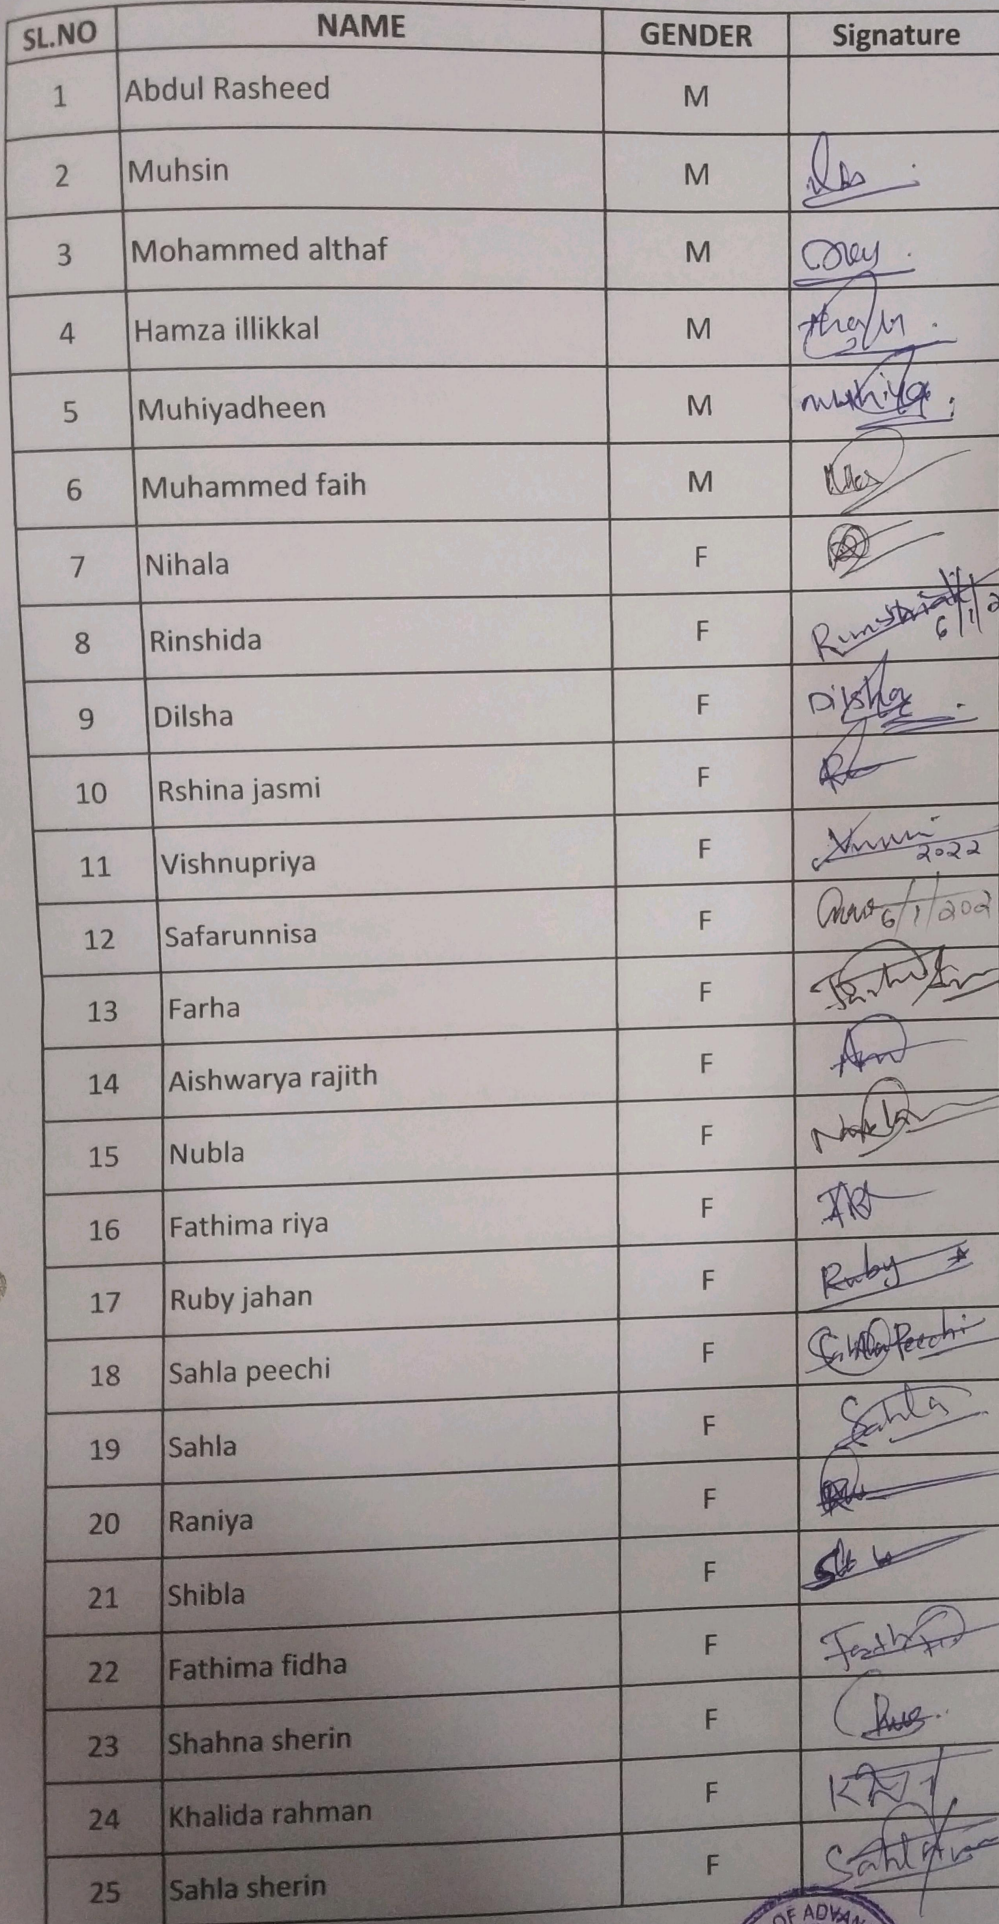 SL.NO NAME GENDER Signature
1 Abdul Rasheed M
2 Muhsin M
3 Mohammed althaf M
4 Hamza illikkal M
5 Muhiyadheen M
6 Muhammed faih M
7 Nihala F
8 Rinshida F 6/1/2
9 Dilsha F Dilsha
10 Rshina jasmi F
11 Vishnupriya F 2022
12 Safarunnisa F 6/1/202
13 Farha F
14 Aishwarya rajith F
15 Nubla F
16 Fathima riya F
17 Ruby jahan F Ruby
18 Sahla peechi F Sahla Peechi
19 Sahla F Sahla
20 Raniya F
21 Shibla F
22 Fathima fidha F
23 Shahna sherin F
24 Khalida rahman F
25 Sahla sherin F
OF ADVAN